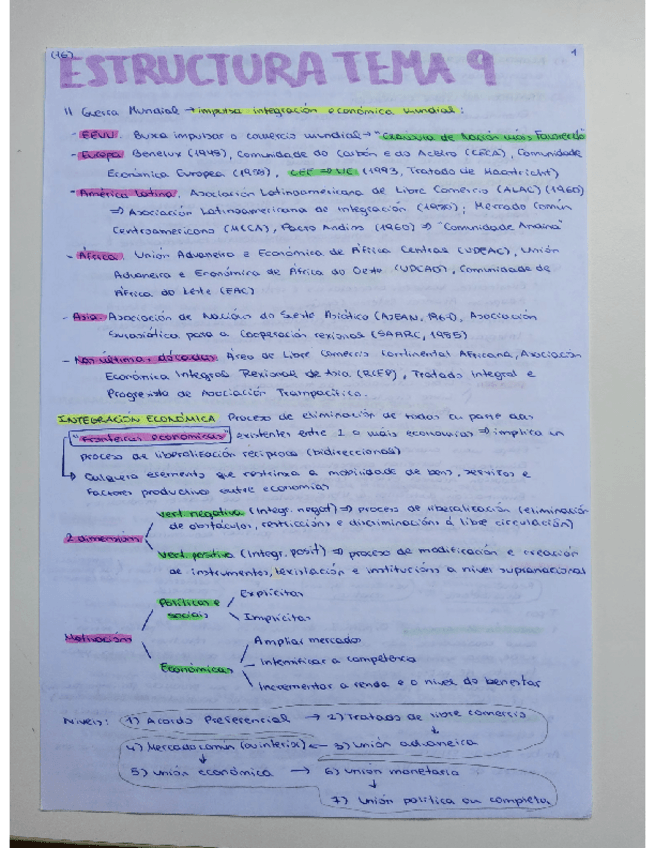 (16)
1
ESTRUCTURA TEMA 9
II Guerra Mundial → impulsa integración económica mundial:
- EEUU. Buxa impulsar o comercio mundial → "Cláusula de Nación máis Favorecida
- Europa Benelux (1945), Comunidade do Carbón e do Aceiro (CECA), Comunidade
Económica Europea (1959), CEE ⇒ UE (1993, Tratado de Maastricht)
- América Latina. Asociación Latinoamericana de Libre Comercio (ALAC) (1960)
⇒ Asociación Latinoamericana de Integración (1980); Mercado Común
Centroamericano (MCCA), Pacto Andino (1960) ⇒ "Comunidade Andina"
- África. Unión Aduaneira e Económica de África Central (UDEAC), Unión
Aduaneira e Económica de África do Oeste (UDCAO), Comunidade de
África do Leste (EAC)
- Asia. Asociación de Nacións do Sueste Asiático (ASEAN, 1967), Asociación
Suroasiática para a Cooperación rexional (SAARC, 1985)
- Nas últimas décadas Área de Libre Comercio Continental Africana, Asociación
Económica Integral Rexional de Asia (RCEP), Tratado Integral e
Progresista de Asociación Transpacífico.
INTEGRACIÓN ECONÓMICA Proceso de eliminación de todas ou parte das
"Fronteiras económicas" existentes entre 2 o máis economías ⇒ implica un
proceso de liberalización recíproca (bidireccional)
Calquera elemento que restrinxa a mobilidade de bens, servizos e
factores productivos entre economías
vert. negativa (Integr. negat) ⇒ proceso de liberalización (eliminación
de obstáculos, restriccións e discriminacións á libre circulación)
2 dimensións
vert. positiva (Integr. posit) ⇒ proceso de modificación e creación
de instrumentos, lexislación e institucións a nivel supranacional
Políticas e
sociais
Explícitas
Implícitas
Motivacións
Económicas
Ampliar mercados
Intensificar a competencia
Incrementar a renda e o nivel de benestar
Niveis: 1) Acordo Preferencial → 2) Tratados de libre comercio
4) Mercado común (ou interior) ← 3) Unión aduaneira
5) Unión económica → 6) Unión monetaria
7) Unión política ou completa